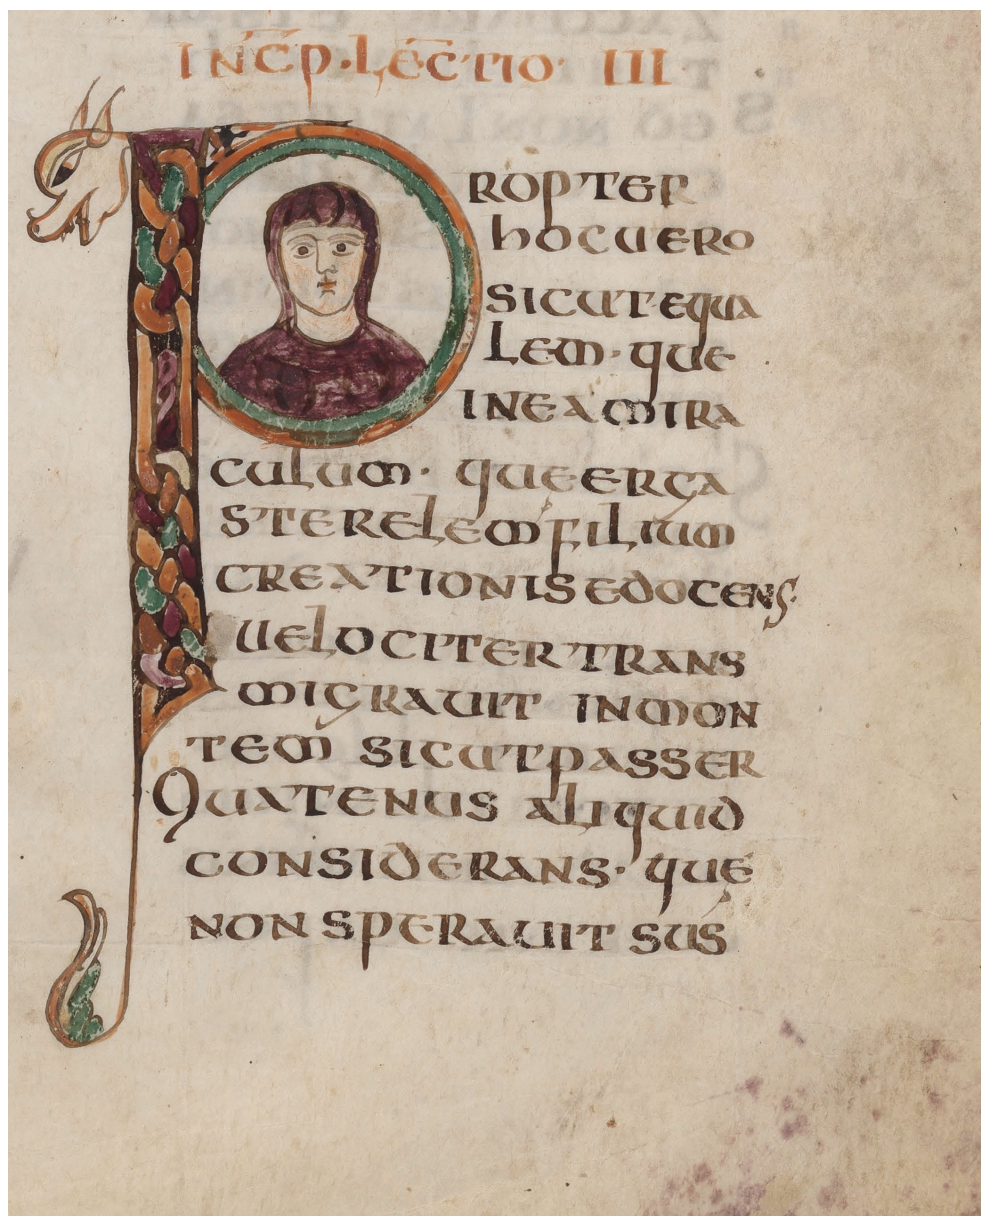 INCP·LECTIO·III
PROPTER
hOCUERO
SICUTEQUA
LEM·QUE
INEAMIRA
CULUM·QUEERGA
STERELEMFILIUM
CREATIONISEDOCENS·
UELOCITERTRANS
MIGRAUIT INMON
TEM SICUTPASSER
QUATENUS ALIQUID
CONSIDERANS·QUE
NON SPERAUIT SUS